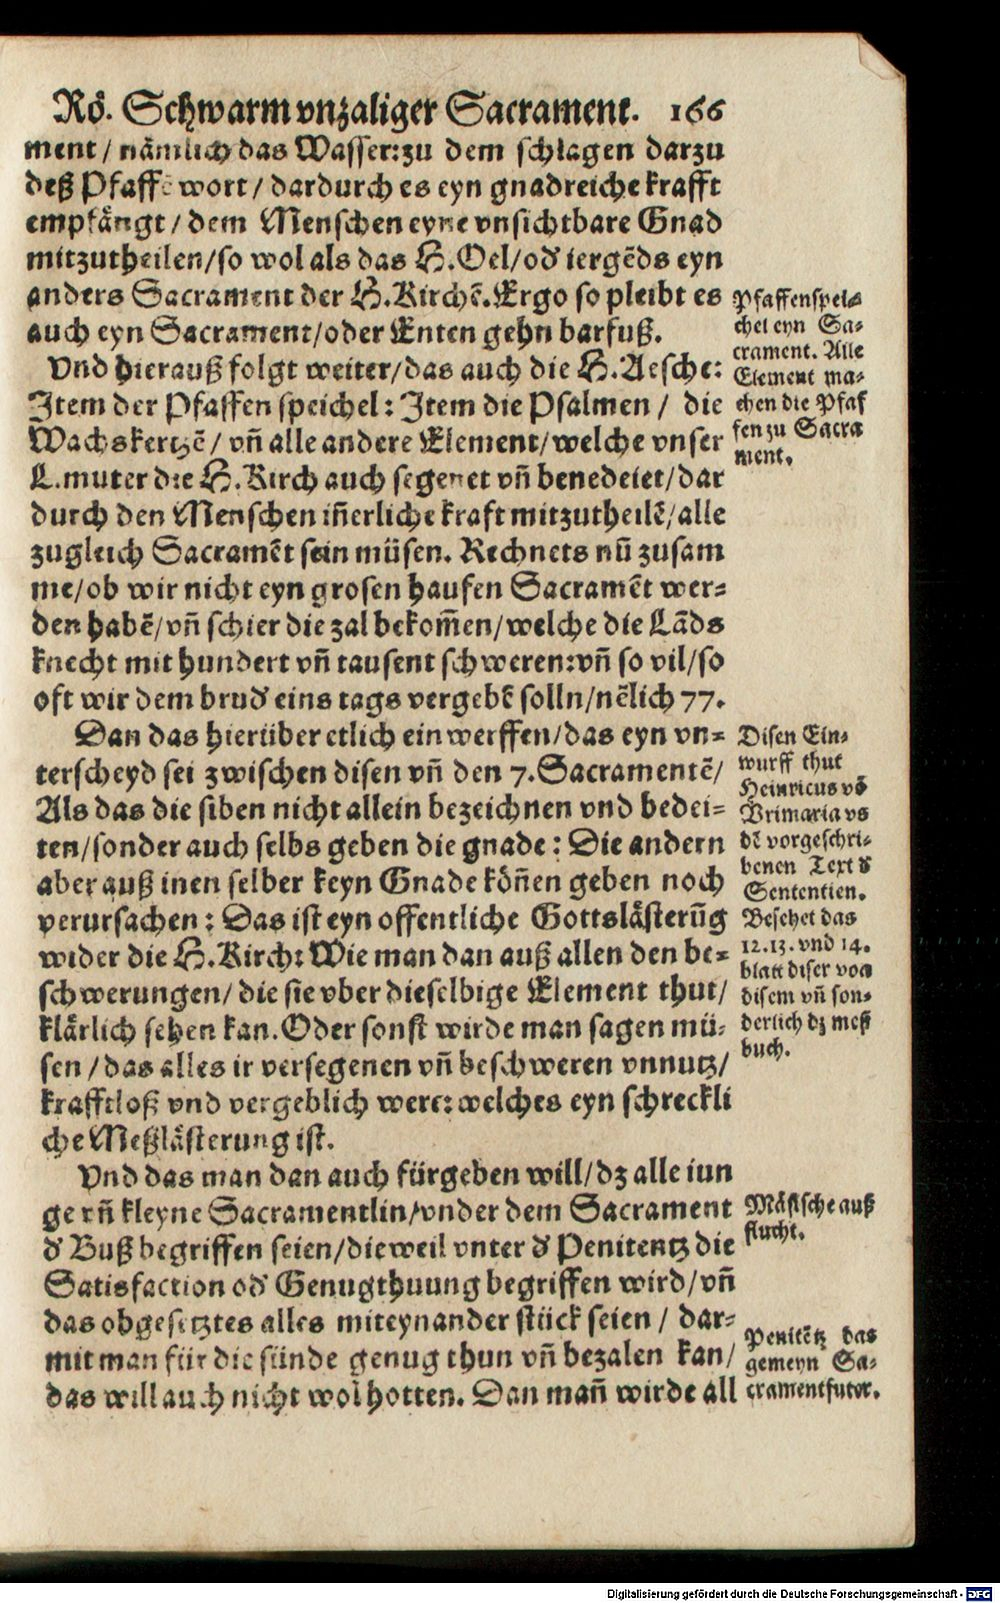 Rö. Schwarm vnzaliger Sacrament. 166
ment / nämlich das Wasser: zu dem schlagen darzu
deß Pfaffē wort / dardurch es eyn gnadreiche krafft
empfängt / dem Menschen eyne vnsichtbare Gnad
mitzutheilen / so wol als das H. Oel / od̕ iergēds eyn
anders Sacrament der H. Kirchē. Ergo so pleibt es
auch eyn Sacrament / oder Enten gehn barfuß.
Pfaffenspei⸗
chel eyn Sa⸗
crament. Alle
Element ma⸗
chen die Pfaf
fen zu Sacra
ment.
Vnd hierauß folgt weiter / das auch die H. Aesche:
Item der Pfaffen speichel: Item die Psalmen / die
Wachskertzē / vn̄ alle andere Element / welche vnser
L. muter die H. Kirch auch segenet vn̄ benedeiet / dar
durch den Menschen in̄erliche kraft mitzutheilē / alle
zugleich Sacramēt sein müsen. Rechnets nū zusam
me / ob wir nicht eyn grosen haufen Sacramēt wer⸗
den habē / vn̄ schier die zal bekom̄en / welche die Lāds
knecht mit hundert vn̄ tausent schweren: vn̄ so vil / so
oft wir dem brud̕ eins tags vergebē solln / nēlich 77.
Dan das hierüber etlich einwerffen / das eyn vn⸗
terscheyd sei zwischen disen vn̄ den 7. Sacramentē /
Als das die siben nicht allein bezeichnen vnd bedei⸗
ten / sonder auch selbs geben die gnade: Die andern
aber auß inen selber keyn Gnade kön̄en geben noch
verursachen: Das ist eyn offentliche Gottslästerūg
wider die H. Kirch: Wie man dan auß allen den be⸗
schwerungen / die sie vber dieselbige Element thut /
klärlich sehen kan. Oder sonst wirde man sagen mü⸗
sen / das alles ir versegenen vn̄ beschweren vnnutz /
krafftloß vnd vergeblich were: welches eyn schreckli
che Meßlästerung ist.
Disen Ein⸗
wurff thut
Heinricus vō
Vrimaria vs
dē vorgeschri⸗
benen Text d̕
Sententien.
Besehet das
12. 13. vnd 14.
blatt diser von
disem vn̄ son⸗
derlich dz meß
buch.
Vnd das man dan auch fürgeben will / dz alle iun
ge vn̄ kleyne Sacramentlin / vnder dem Sacrament
d̕ Buß begriffen seien / dieweil vnter d̕ Penitentz die
Satisfaction od̕ Genugthuung begriffen wird / vn̄
das obgesetztes alles miteynander stück seien / dar⸗
mit man für die sünde genug thun vn̄ bezalen kan /
das will auch nicht wol hotten. Dan man̄ wirde all
Mäsische auß
flucht.
Penitētz das
gemeyn Sa⸗
cramentfutor.
Digitalisierung gefördert durch die Deutsche Forschungsgemeinschaft - DFG